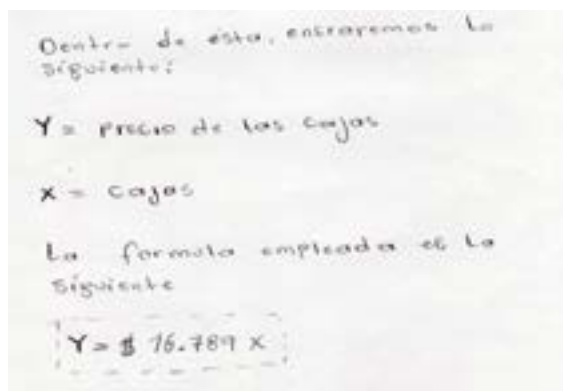 Dentro de ésta, entraremos lo
siguiente:
Y = precio de las cajas
X = cajas
La formula empleada es la
siguiente
Y = $ 16.789 X